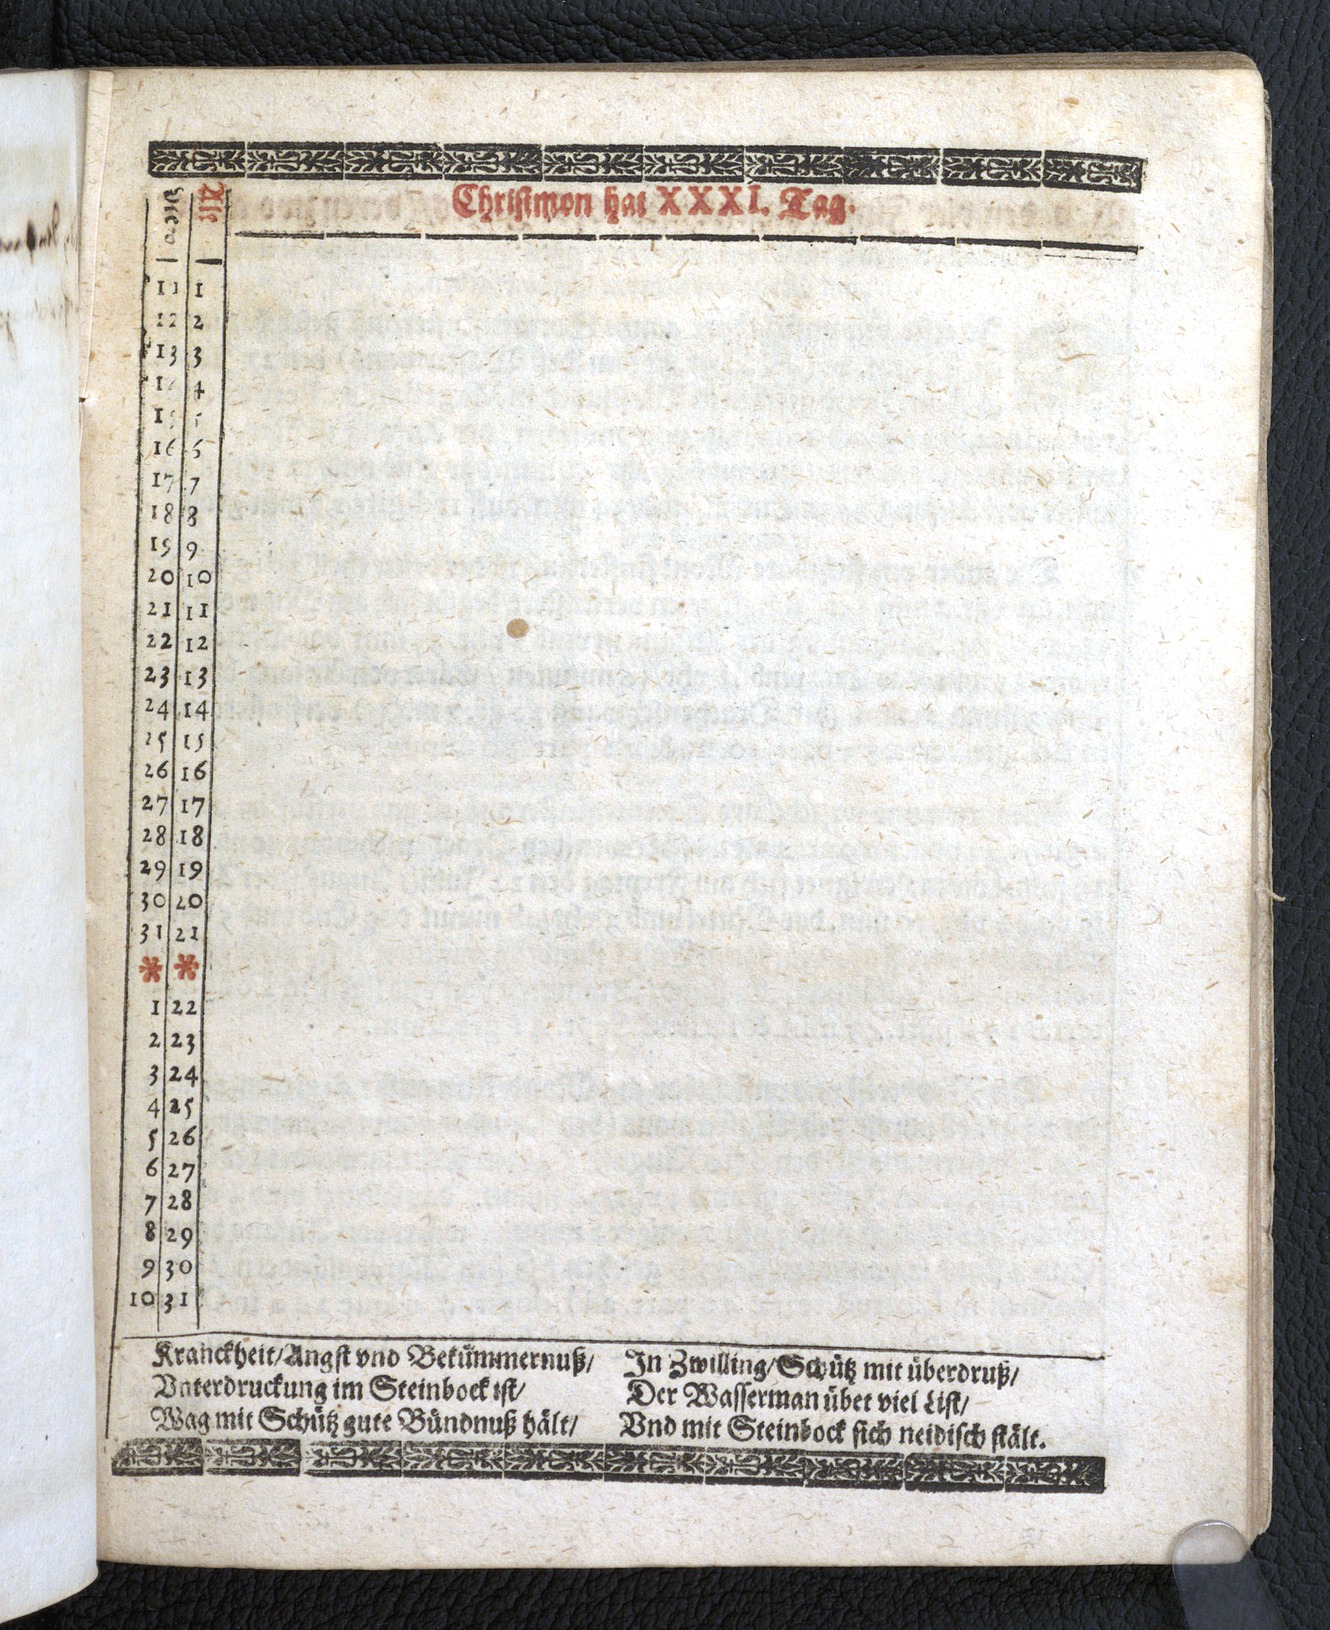 Alt
Christmon hat XXXI. Tag.
11 1
12 2
13 3
14 4
15 5
16 6
17 7
18 8
19 9
20 10
21 11
22 12
23 13
24 14
25 15
26 16
27 17
28 18
29 19
30 20
31 21
* *
1 22
2 23
3 24
4 25
5 26
6 27
7 28
8 29
9 30
10 31
Kranckheit/Angst vnd Bekümmernuß/
Vnterdruckung im Steinbock ist/
Wag mit Schütz gute Bündnuß hält/
In Zwilling/Schütz mit überdruß/
Der Wasserman übet viel List/
Vnd mit Steinbock sich neidisch stält.